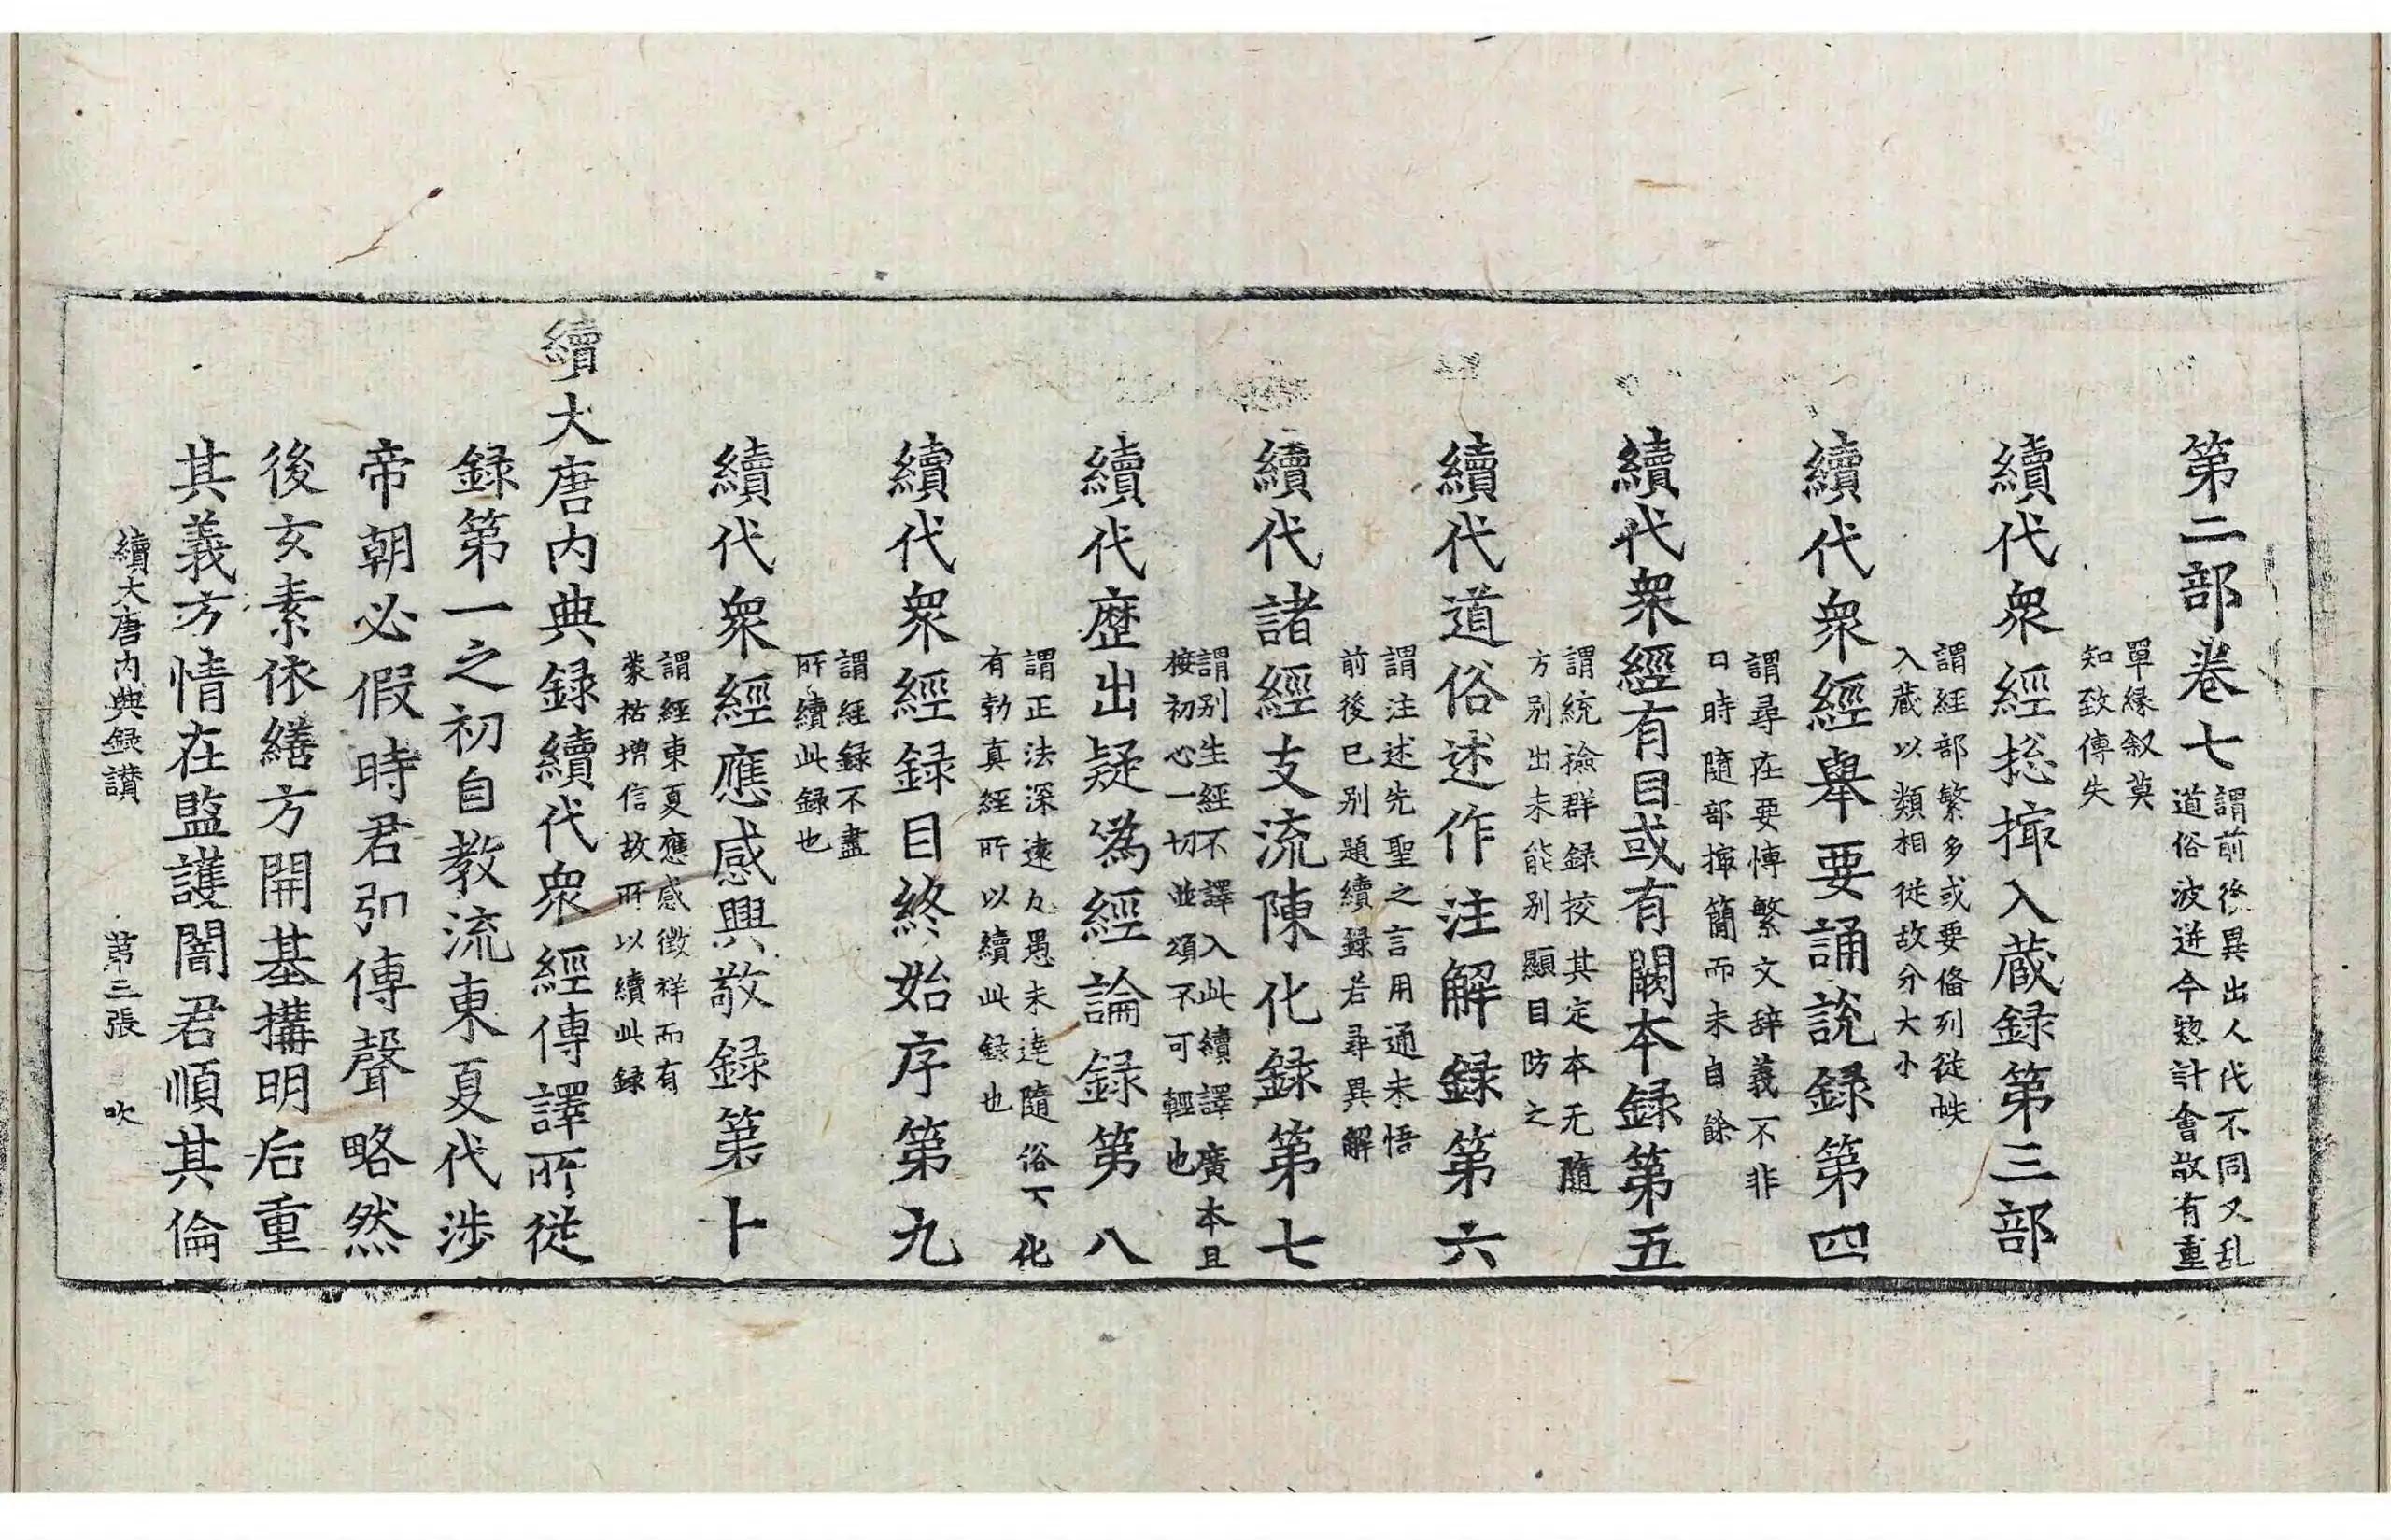 第二部卷七
謂前後異出人代不同又乱
道俗波迸今揔計會故有重
單縁叙莫
知致傳失
續代衆經揔撮入蔵録第三部
謂經部繁多或要俻列從帙
入蔵以類相從故分大小
續代衆經舉要誦說録第四
謂尋在要愽繁文辞義不非
日時隨部撮簡而未自餘
續代衆經有目或有闕本録第五
謂統撿群録挍其定本无隨
方别出未能别顯目防之
續代道俗述作注解録第六
謂注述先聖之言用通未悟
前後巳别題續録若尋異解
續代諸經支流陳化録第七
謂别生經不譯入此續譯廣本且
接初心一切並頌不可輕也
續代歷出疑僞經論録第八
謂正法深遠凡愚未達隨俗下化
有勃真經所以續此録也
續代衆經録目終始序第九
謂經録不盡
所續此録也
續代衆經應感興敬録第十
謂經東夏應感徵祥而有
蒙祐增信故所以續此録
續大唐内典録續代衆經傳譯所從
録第一之初自教流東夏代涉
帝朝必假時君弘傳聲略然
後玄素依繕方開基搆明后重
其義方情在監護闇君順其倫
續大唐内典録讃 第三張 吹